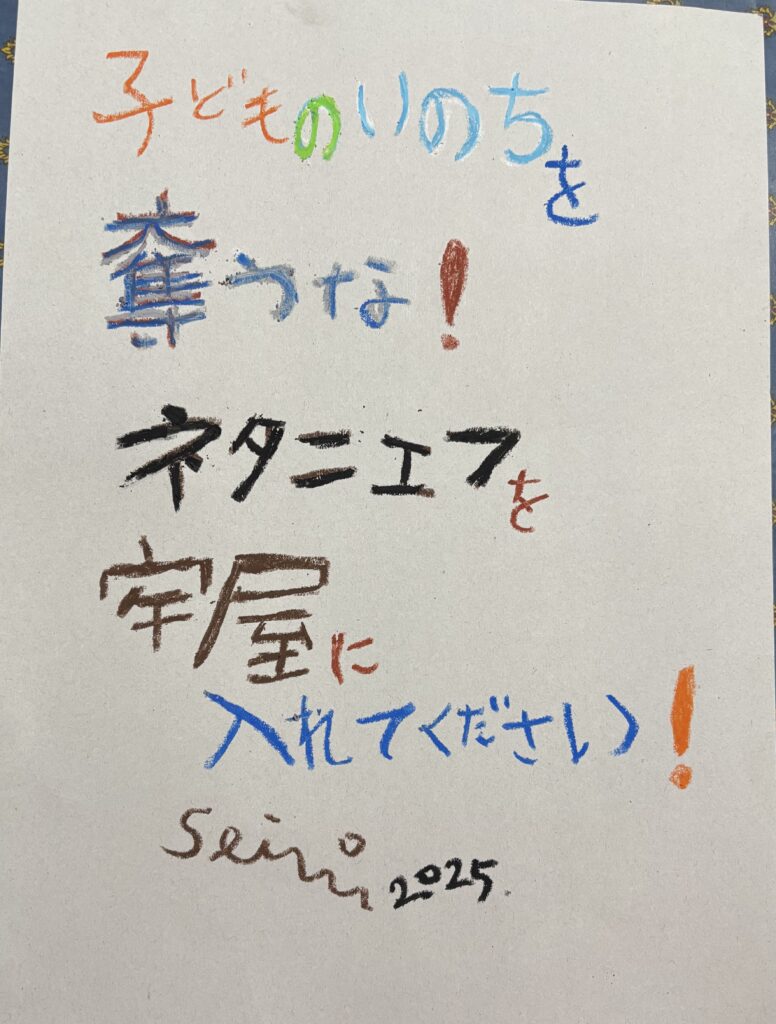 子どものいのちを
奪うな!
ネタニエフを
牢屋に
入れてください!
2025.